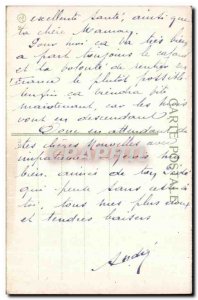 excellente santé, ainsi que
ta chère Maman,
Pour moi ca va très bien
a part toujours le cafard
et la volonté de rentrer en
France le plutôt possible
enfin ca viendra vite
maintenant, car les mois
vont en descendant
Donc en attendant de
tes chères nouvelles avec
impatience, bien
aimée de ton André
qui pense sans cesse à
toi, tous mes plus doux
et tendres baisers
André
CARTE POSTALE